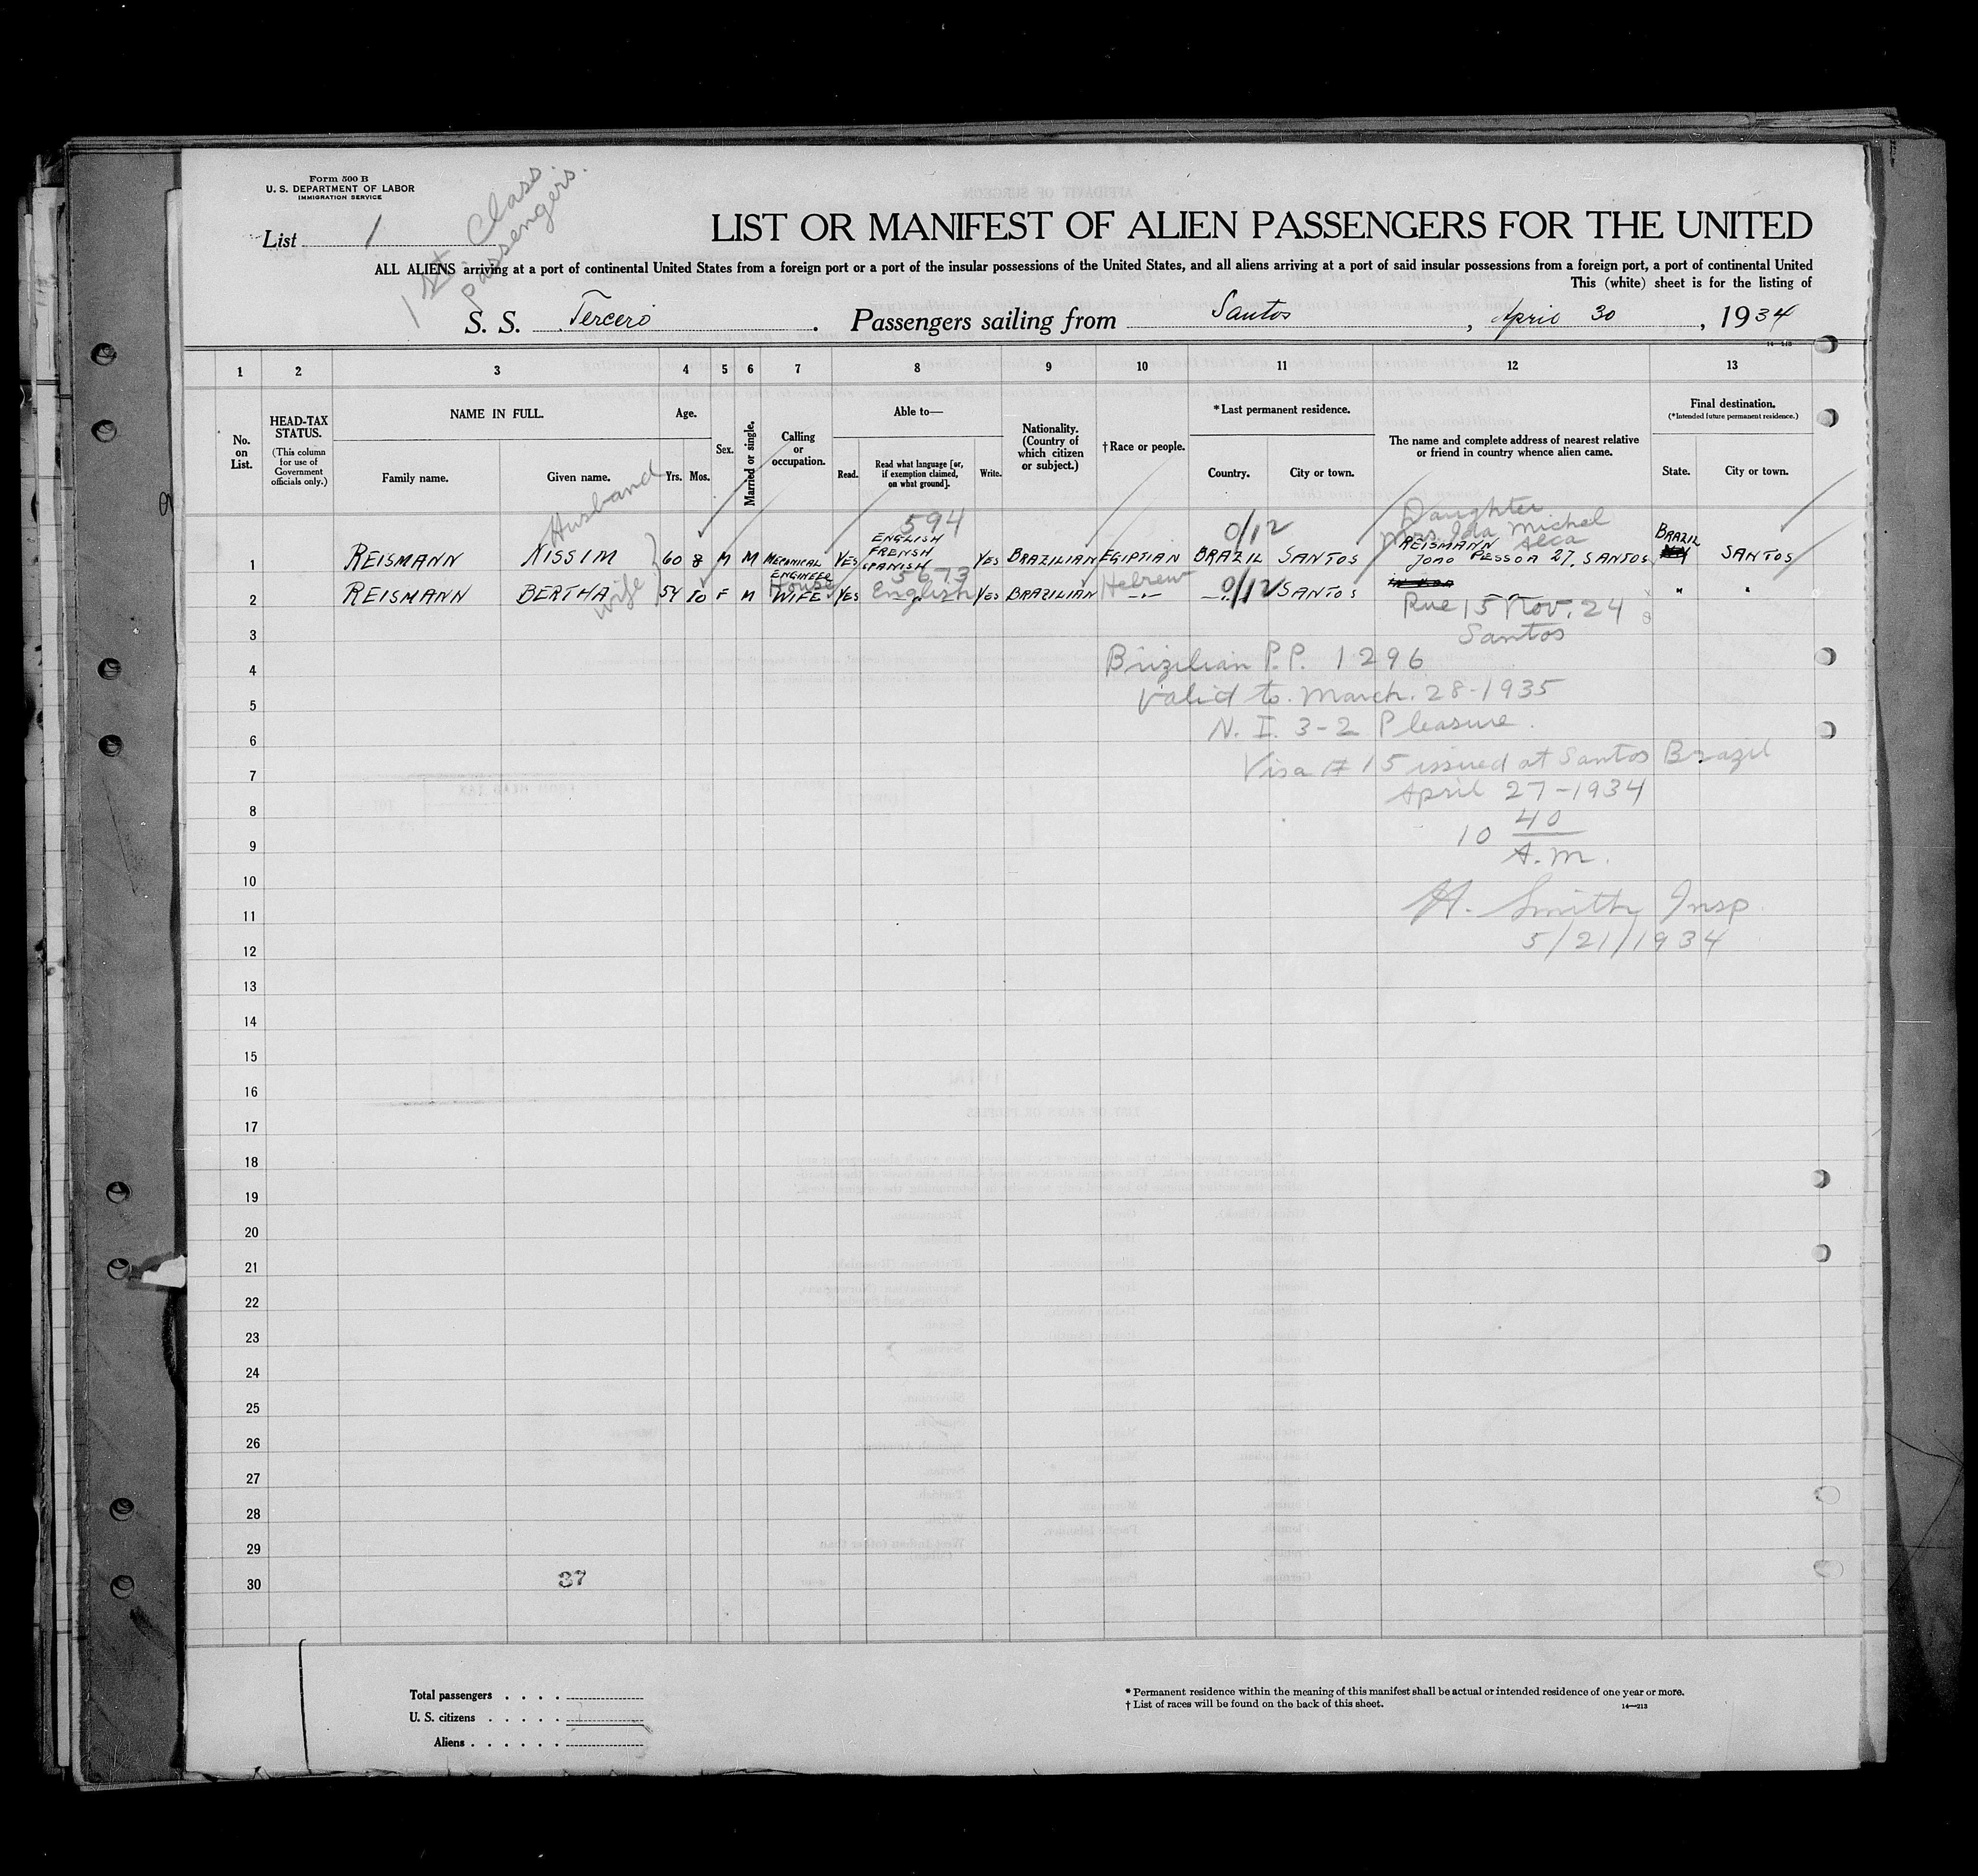 Form 500 B
U. S. DEPARTMENT OF LABOR
IMMIGRATION SERVICE
List 1
1st Class
Passengers.
LIST OR MANIFEST OF ALIEN PASSENGERS FOR THE UNITED
ALL ALIENS arriving at a port of continental United States from a foreign port or a port of the insular possessions of the United States, and all aliens arriving at a port of said insular possessions from a foreign port, a port of continental United
This (white) sheet is for the listing of
S. S. Tercero . Passengers sailing from Santos , April 30 , 1934
14-213
1 2 3 4 5 6 7 8 9 10 11 12 13
No. on List.
HEAD-TAX STATUS.
(This column for use of Government officials only.)
NAME IN FULL.
Family name. Given name.
Age.
Yrs. Mos.
Sex.
Married or single.
Calling or occupation.
Able to—
Read. Read what language [or, if exemption claimed, on what ground]. Write.
Nationality. (Country of which citizen or subject.)
† Race or people.
* Last permanent residence.
Country. City or town.
The name and complete address of nearest relative or friend in country whence alien came.
Final destination.
(*Intended future permanent residence.)
State. City or town.
Husband
594
0/12
Daughter
Mrs. Ida Michel
Alca
1 REISMANN NISSIM 60 8 M M MECHNICAL ENGINEER YES ENGLISH FRENSH SPANISH YES BRAZILIAN EGIPTIAN BRAZIL SANTOS REISMANN JOAO PESSOA 27. SANTOS BRAZIL SANTOS
wife
5673
2 REISMANN BERTHA 54 10 F M House WIFE YES English YES BRAZILIAN Hebrew -"- 0/12 SANTOS " "
Rue 15 Nov. 24
Santos
Brizilian P.P. 1296
Valid to March. 28-1935
N. I. 3-2 Pleasure.
Visa # 15 issued at Santos Brazil
April 27-1934
10 40
A.M.
H. Smith Insp
5/21/1934
3
4
5
6
7
8
9
10
11
12
13
14
15
16
17
18
19
20
21
22
23
24
25
26
27
28
29
30
37
Total passengers . . . .
U. S. citizens . . . . .
Aliens . . . . . .
* Permanent residence within the meaning of this manifest shall be actual or intended residence of one year or more.
† List of races will be found on the back of this sheet.
14—213